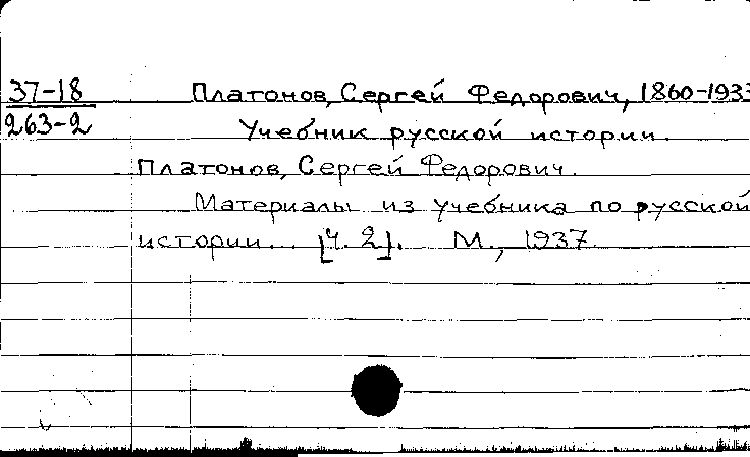 37-18
263-2
Платонов, Сергей Федорович, 1860-1933
Учебник русской истории.
Платонов, Сергей Федорович.
Материалы из учебника по русской
истории... [Ч. 2]. М., 1937.